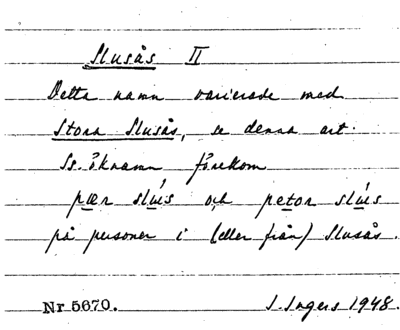 Slusås II
Detta namn varierade med
Stora Slusås, se denna art.
Ss. öknamn förekom
pær slús och petor slús
på personer i (eller från) Slusås.
Nr 5670. I. Ingers 1948.